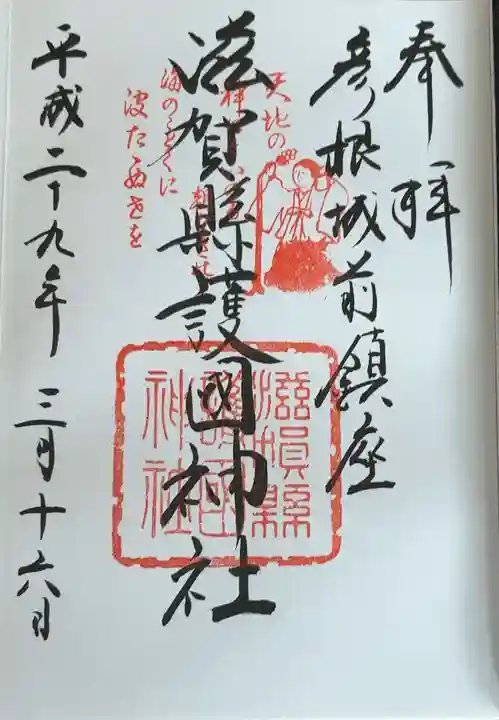 奉拝
彦根城前鎮座
滋賀縣護國神社
平成二十九年三月十六日
天地の
海のことくに
波たゝぬ世を
滋賀縣
護國
神社